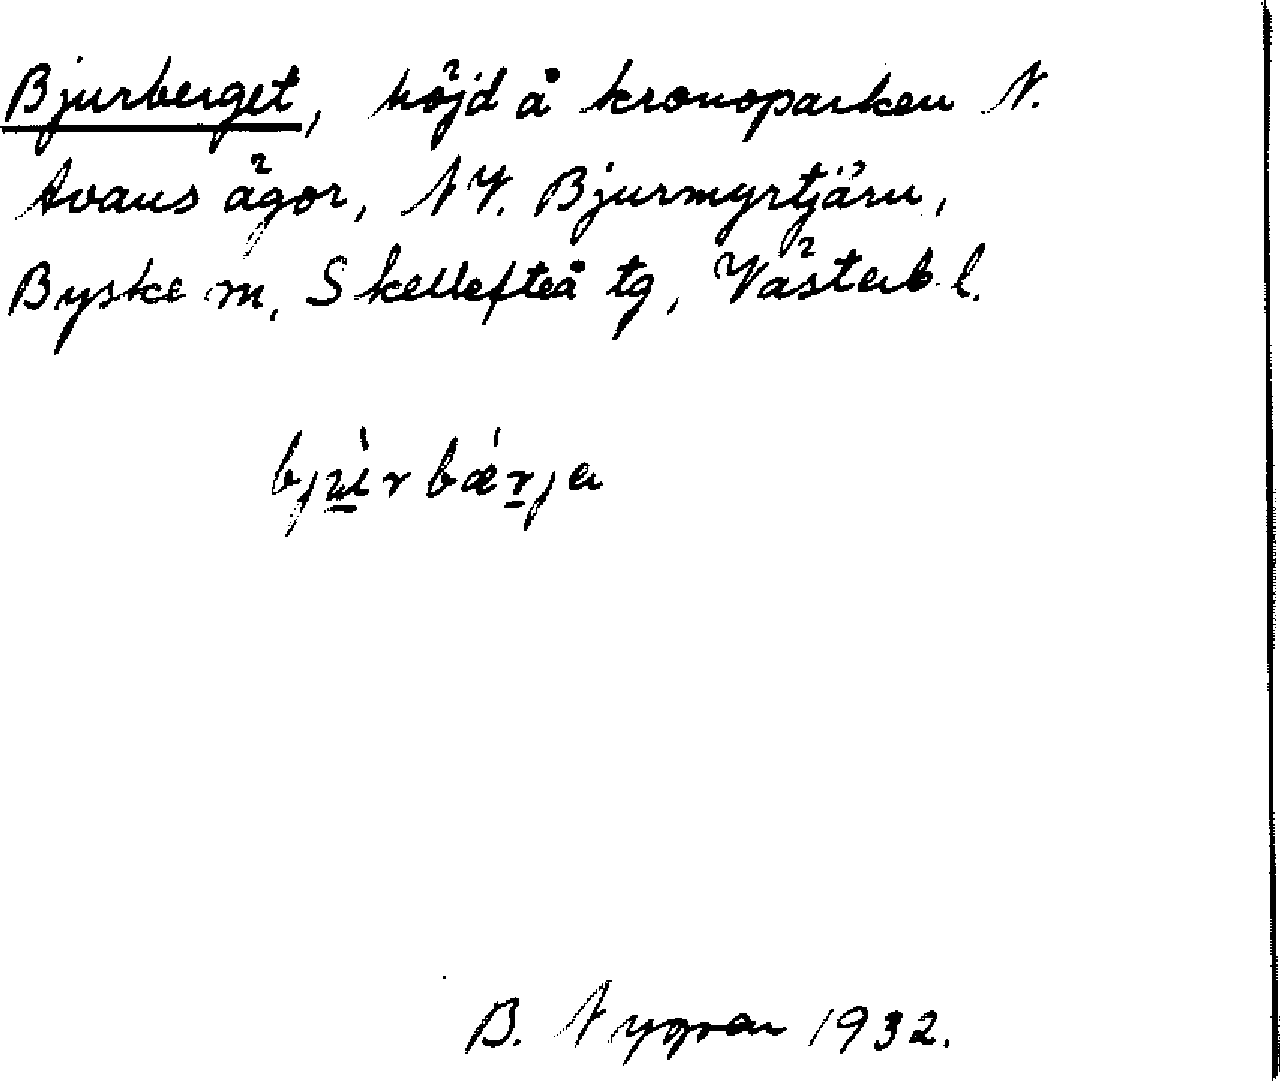 Bjurberget, höjd å kronoparken N.
Avans ägor, NV. Bjurmyrtjärn,
Byske sn, Skellefteå tg, Västerb l.
bjʉ̀rbǽrja
B. Nygren 1932.